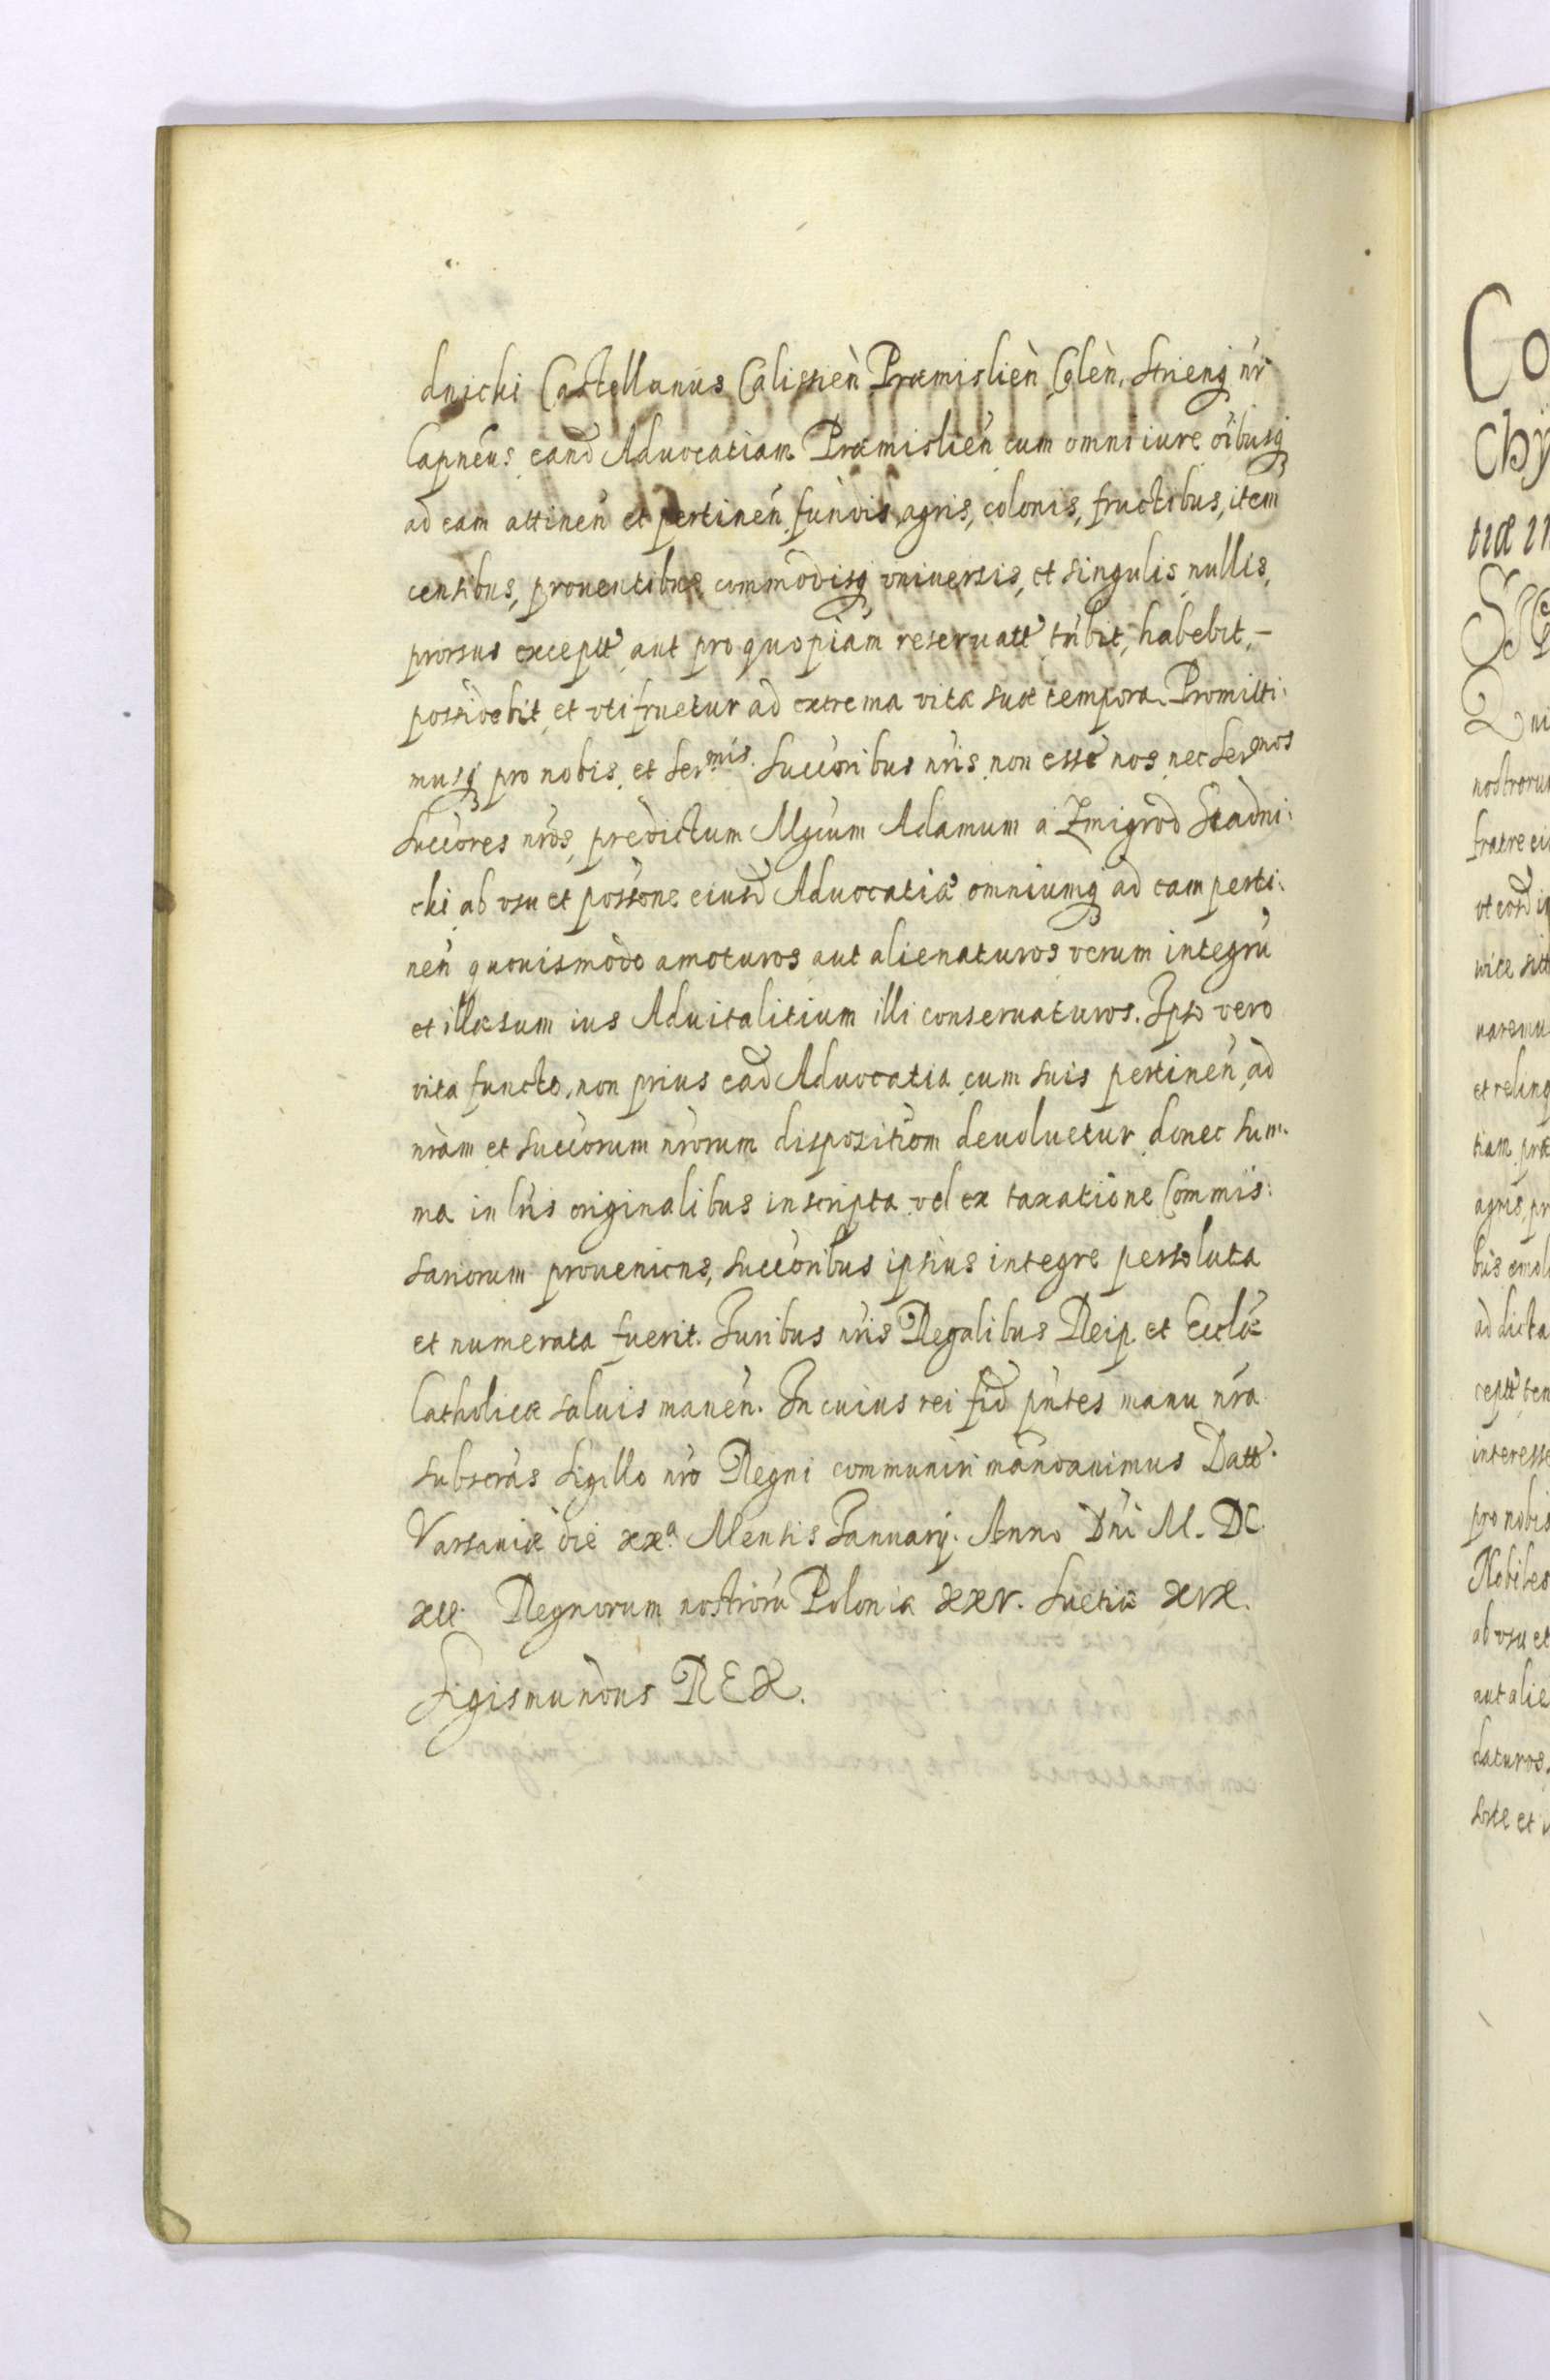 dnicki Castellanus Calissień Præmislień Colēn. Strienq nr̄
Capnēus eand Aduocatiam Præmislień cum omni iure oībusq
ad eam attineń et pertineń fundis, agris, colonis, fructibus, item
censibus, prouentibus commodisq vniuersis, et singulis nullis,
prorsus exceptt aut pro quopiam reseruatt tñbit, habebit, –
possidebit et vti fruetur ad extrema vitæ suæ tempora. Promitti:
musq pro nobis, et Ser mis. Succoribus nr̄is non esse nos nec Ser mos
Succores nr̄os, predictum Mgcum Adamum a Zmigrod Stadni:
cki ab vsu et possone eiusd Aduocatiæ omniumq ad eam perti:
neń quouismodo amoturos aut alienaturos verum integrū
et illæsum ius Aduitalitium illi conseruaturos. Ipso vero
vita functo, non prius ead Aduocatia cum suis pertineń ad
nr̄am et succorum nr̄orum dispositiom deuoluetur donec Sum:
ma in lr̄is originalibus inscripta vel ex taxatione Commis:
sariorum proueniens, succoribus ipsius integre persoluta
et numerata fuerit. Iuribus nr̄is Regalibus Reip. et Ecclæ
Catholicæ saluis maneń. In cuius rei fid pñtes manu nr̄a
subscras Sigillo nr̄o Regni communiri mandauimus Datt.
Varsauiæ die xx a Mensis January. Anno Dñi M. DC
xii. Regnorum nostrorū Poloniæ xxv. Suetiæ xix.
Sigismundus REX.